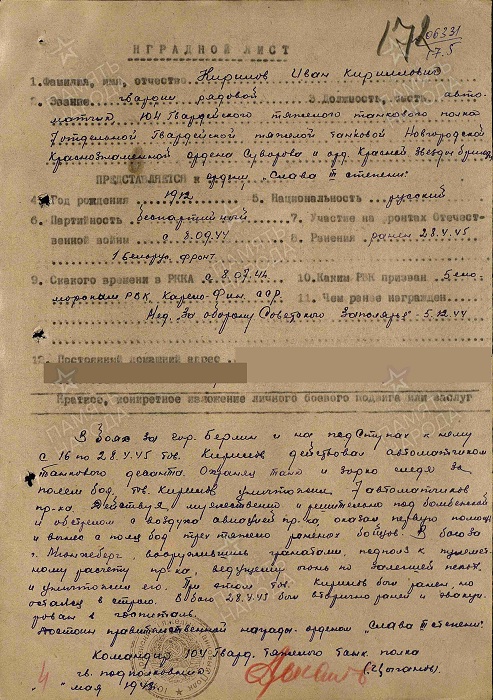 172
06331
7.5
НГРАДНОЙ ЛИСТ
1. Фамилия, имя, отчество Кирилов Иван Кириллович
2. Звание гвардии рядовой 3. Должность, часть авто-
матчик 104 Гвардейского тяжелого танкового полка
7 отдельной Гвардейской тяжелой танковой Новгородской
Краснознаменной ордена Суворова и орд. Красной Звезды бригады
ПРЕДСТАВЛЯЕТСЯ к ордену „Слава III степени“
4. Год рождения 1912 5. Национальность русский
6. Партийность беспартийный 7. Участие на фронтах Отечест-
венной войны с 8.09.44 8. Ранения ранен 28.4.45
1 Белорус. фронт
9. Скакого времени в РККА с 8.09.44 10. Каким РВК призван Бело-
морским РВК, Карело-Фин. ССР 11. Чем ранее награжден
Мед. „За оборону Советского Заполярья“ - 5.12.44
12. Постоянный домашний адрес
Краткое, конкретное изложение личного боевого подвига или заслуг
В боях за гор. Берлин и на подступах к нему
с 16 по 28.4.45 тов. Кирилов действовал автоматчиком
танкового десанта. Охраняя танк и зорко следя за
полем боя, тов. Кирилов уничтожил 7 автоматчиков
пр-ка. Действуя мужественно и решительно под бомбежкой
и обстрелом с воздуха авиацией пр-ка, оказал первую помощь
и вынес с поля боя трех тяжело раненых бойцов. В бою за
г. Мюнхеберг, вооружившись гранатами, подполз к пулемет-
ному расчету пр-ка, ведущему огонь по залегшей пехоте
и уничтожил его. При этом тов. Кирилов был ранен, но
остался в строю. В бою 28.4.45 был вторично ранен и эвакуи-
рован в госпиталь.
Достоин правительственной награды орденом „Слава III степени“.
Командир 104 Гвард. Тяжелого танк. полка
гв. подполковник (Цыганов)
4 „ мая 1945
ПАМЯТЬ НАРОДА